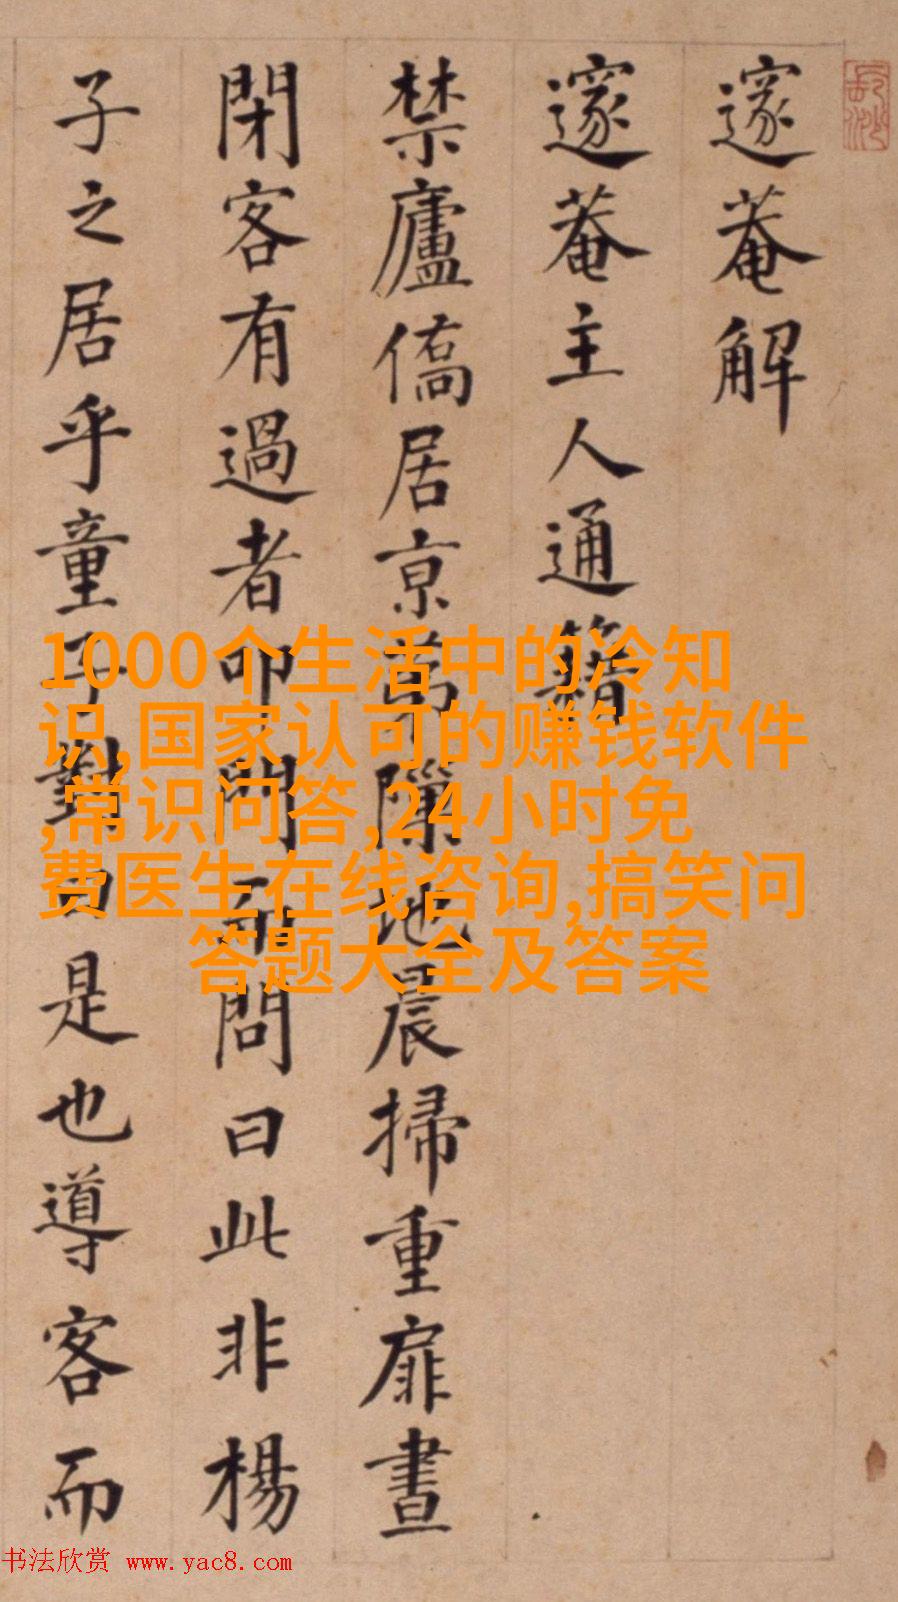 邃菴解
邃菴主人通籍
禁廬僑居京第隙地晨掃重扉晝
閉客有過者叩門而問曰此非楊
子之居乎童子對曰是也導客而
1000个生活中的冷知
识,国家认可的赚钱软件
,常识问答,24小时免
费医生在线咨询,搞笑问
答题大全及答案
书法欣赏 www.yac8.com